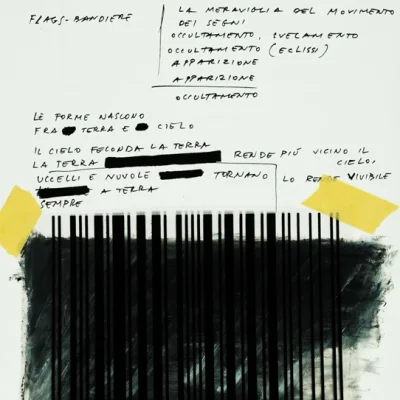 FLAGS-BANDIERE
LA MERAVIGLIA DEL MOVIMENTO
DEI SEGNI
OCCULTAMENTO, SVELAMENTO
OCCULTAMENTO (ECLISSI)
APPARIZIONE
APPARIZIONE
OCCULTAMENTO
LE FORME NASCONO
FRA TERRA E CIELO
IL CIELO FECONDA LA TERRA
LA TERRA RENDE PIÙ VICINO IL CIELO,
UCCELLI E NUVOLE TORNANO LO RENDE VIVIBILE
A TERRA
SEMPRE